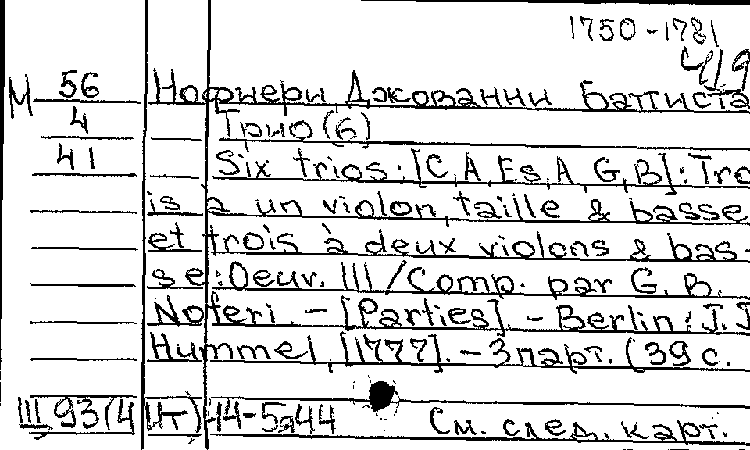 1750-1781
419
М 56 Нофиери Джованни Баттиста
4 Трио (6)
41 Six trios: [C, A, Es, A, G, B]: Tro
is à un violon, taille & basse
et trois à deux violons & bas-
se: Oeuv. III / Comp. par G. B.
Noferi. - [Parties]. - Berlin: J. J.
Hummel, [1777]. - 3 парт. (39 с.
III 93(4 Ит) 44-5я44 См. след. карт.